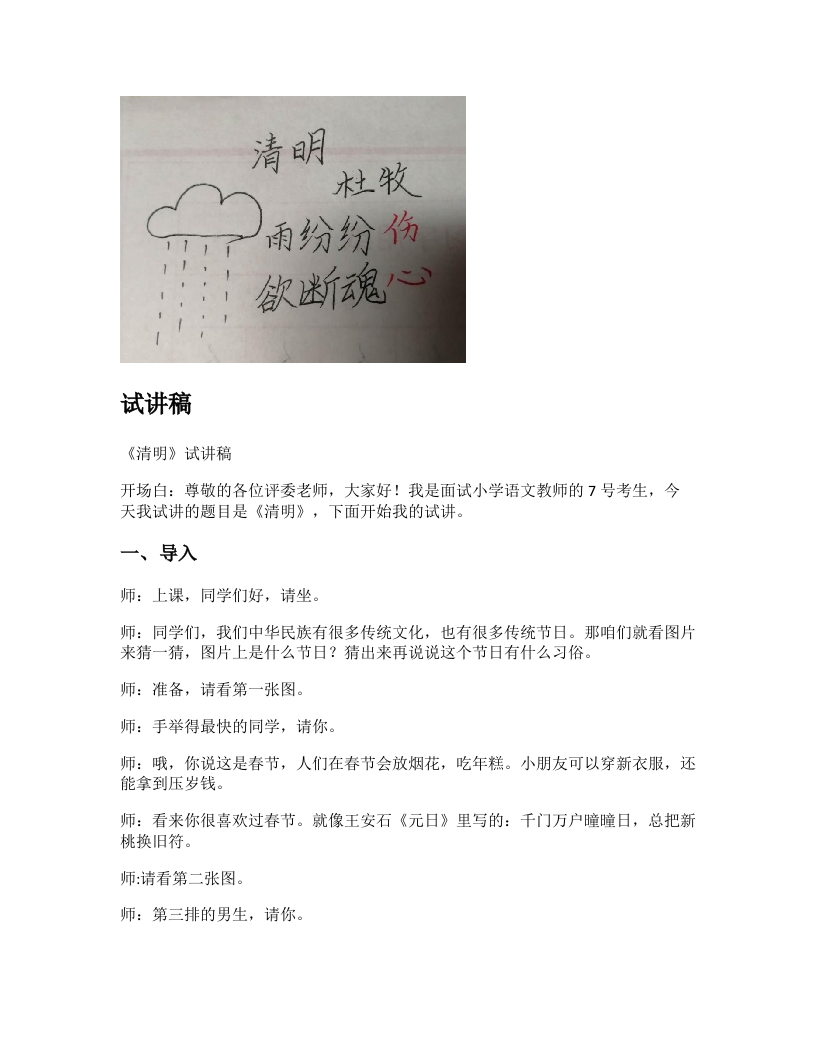 清明
杜牧
雨纷纷 伤
欲断魂 心
试讲稿
《清明》试讲稿
开场白：尊敬的各位评委老师，大家好！我是面试小学语文教师的 7 号考生，今
天我试讲的题目是《清明》，下面开始我的试讲。
一、导入
师：上课，同学们好，请坐。
师：同学们，我们中华民族有很多传统文化，也有很多传统节日。那咱们就看图片
来猜一猜，图片上是什么节日？猜出来再说说这个节日有什么习俗。
师：准备，请看第一张图。
师：手举得最快的同学，请你。
师：哦，你说这是春节，人们在春节会放烟花，吃年糕。小朋友可以穿新衣服，还
能拿到压岁钱。
师：看来你很喜欢过春节。就像王安石《元日》里写的：千门万户曈曈日，总把新
桃换旧符。
师:请看第二张图。
师：第三排的男生，请你。